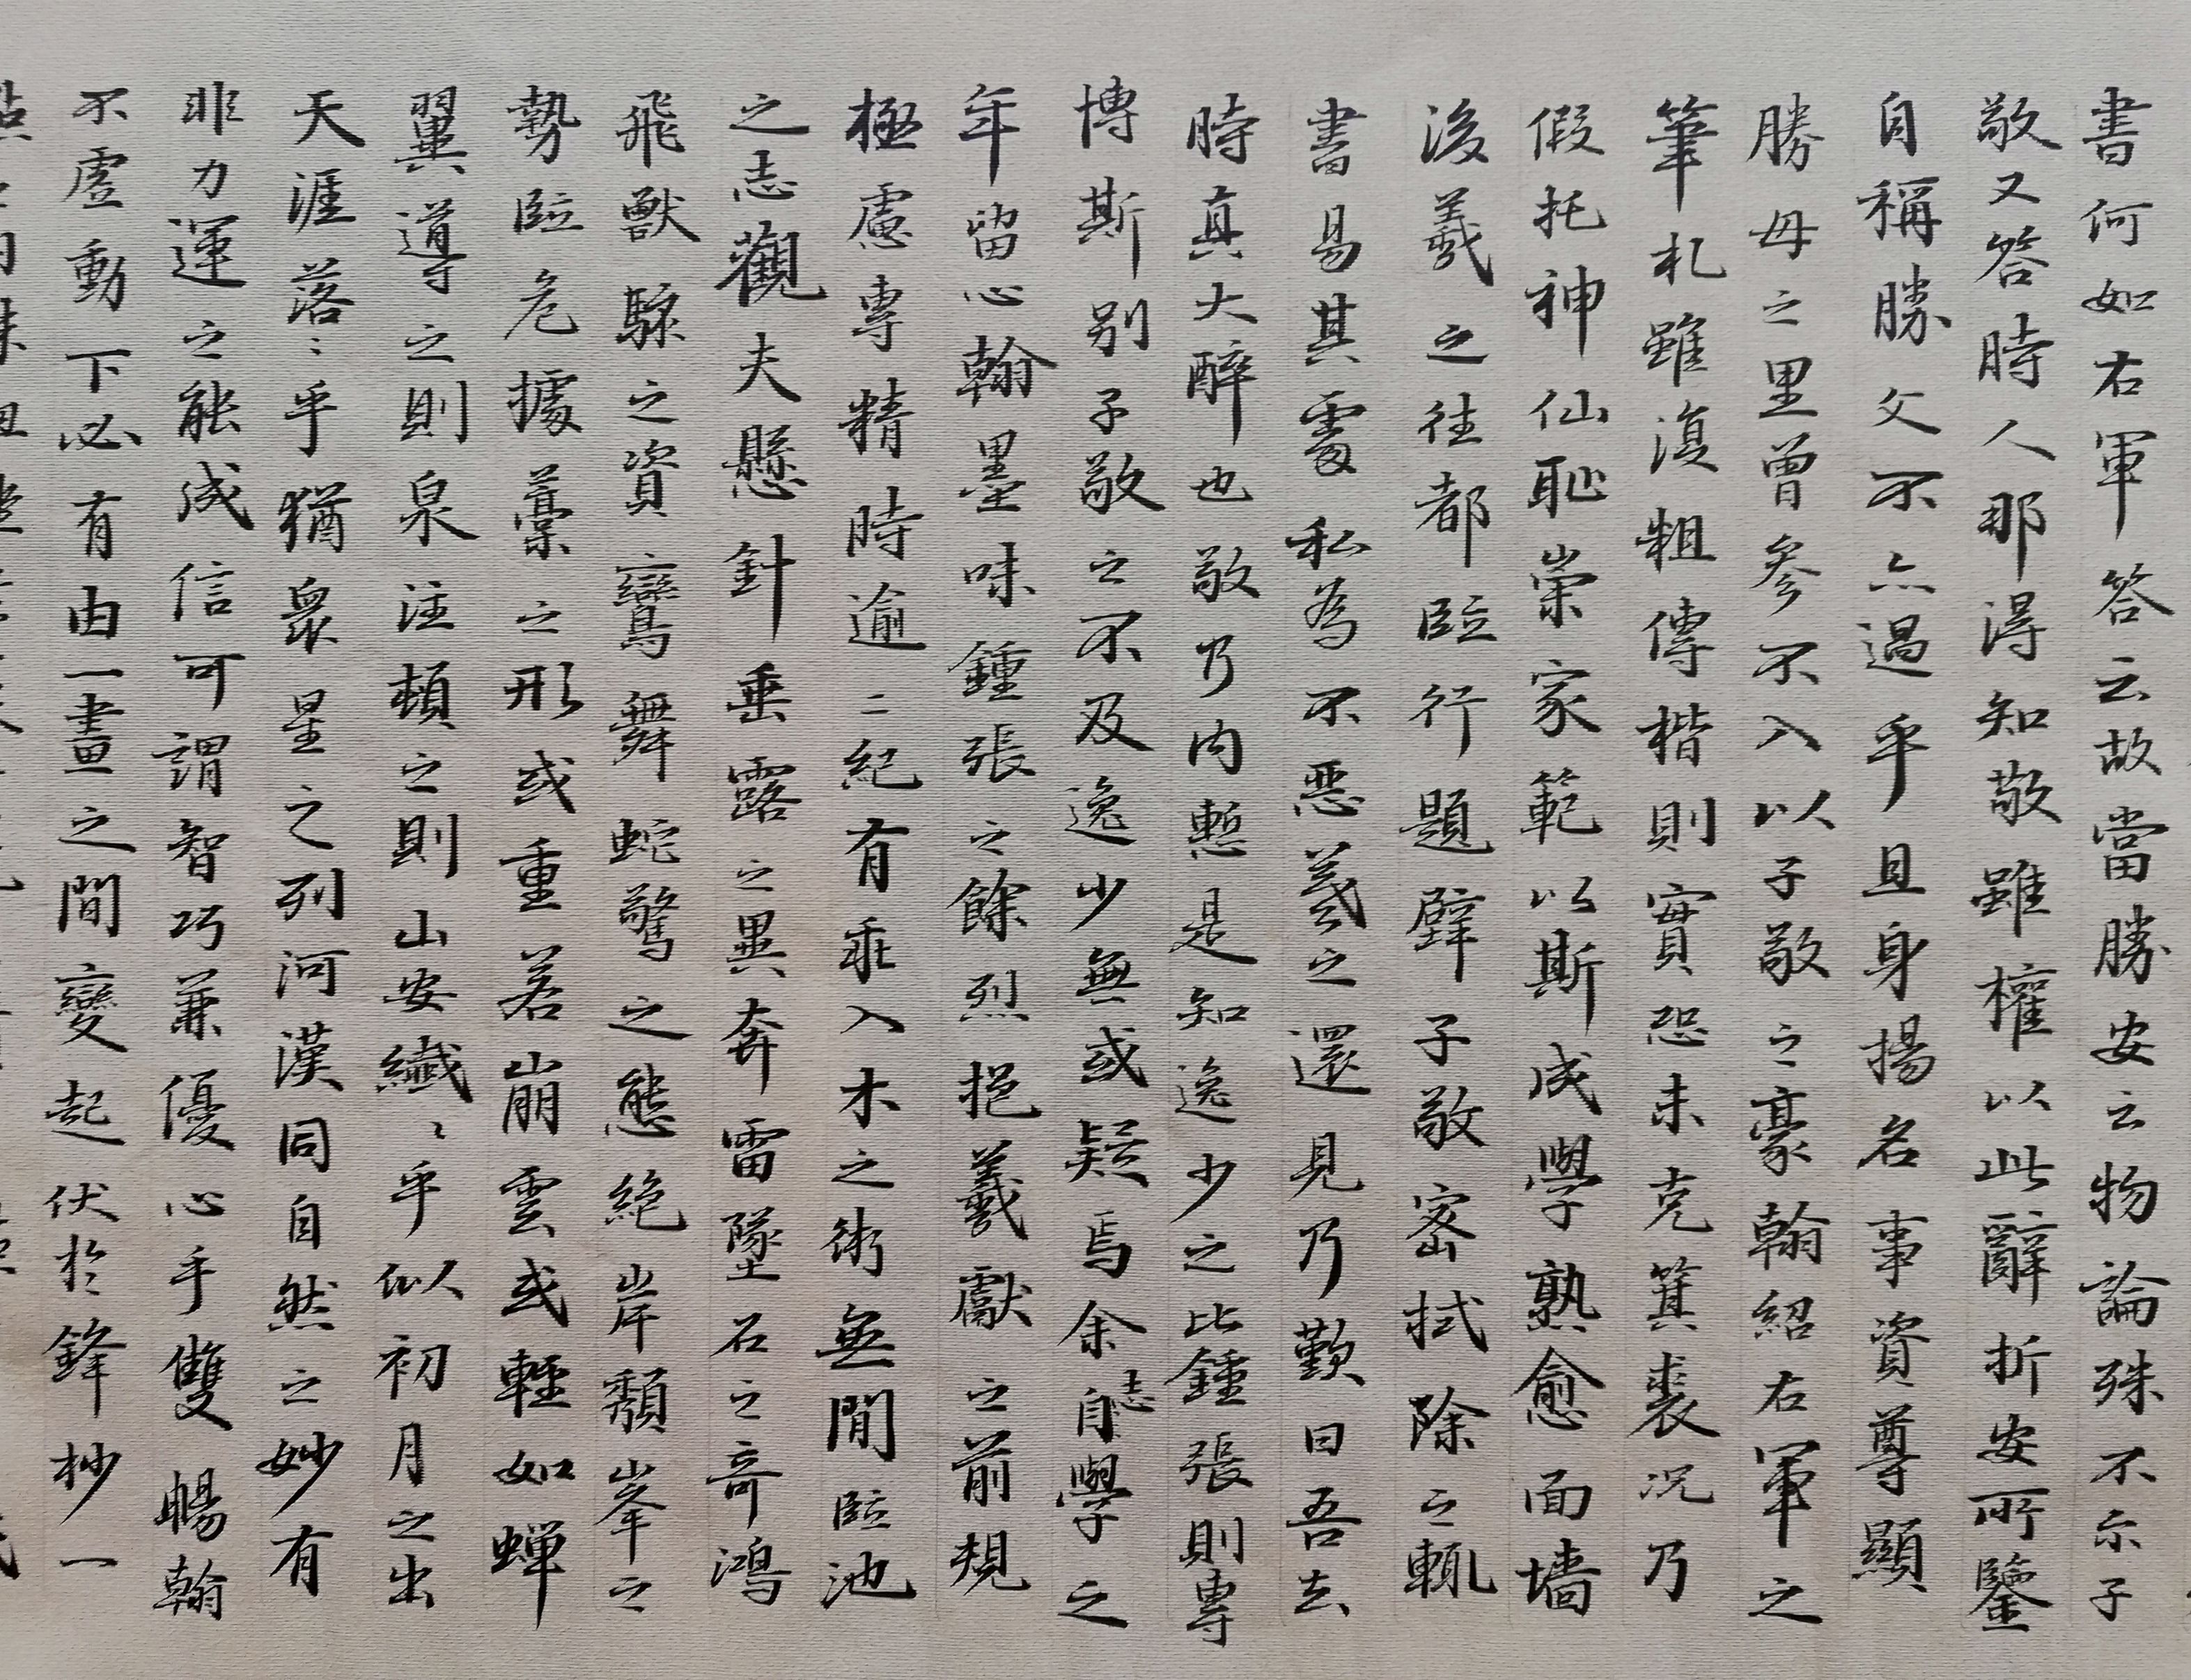 書何如右軍答云故當勝安云物論殊不尓子
敬又答時人那得知敬雖權以此辭折安所鑒
自稱勝父不亦過乎且身揚名事資尊顯
勝母之里曾參不入以子敬之豪翰紹右軍之
筆札雖復粗傳楷則實恐未克箕裘況乃
假托神仙恥崇家範以斯成學熟愈面墻
後羲之往都臨行題壁子敬密拭除之輒
書易其處私為不惡羲之還見乃歎曰吾去
時真大醉也敬乃內慙是知逸少之比鍾張則專
博斯別子敬之不及逸少無或疑焉余自志學之
年留心翰墨味鍾張之餘烈挹羲獻之前規
極慮專精時逾二紀有乖入木之術無間臨池
之志觀夫懸針垂露之異奔雷墜石之奇鴻
飛獸駭之資鸞舞蛇驚之態絕岸頹峯之
勢臨危據藁之形或重若崩雲或輕如蟬
翼導之則泉注頓之則山安纖〻乎似初月之出
天涯落〻乎猶眾星之列河漢同自然之妙有
非力運之能成信可謂智巧兼優心手雙暢翰
不虛動下必有由一畫之間變起伏於鋒杪一